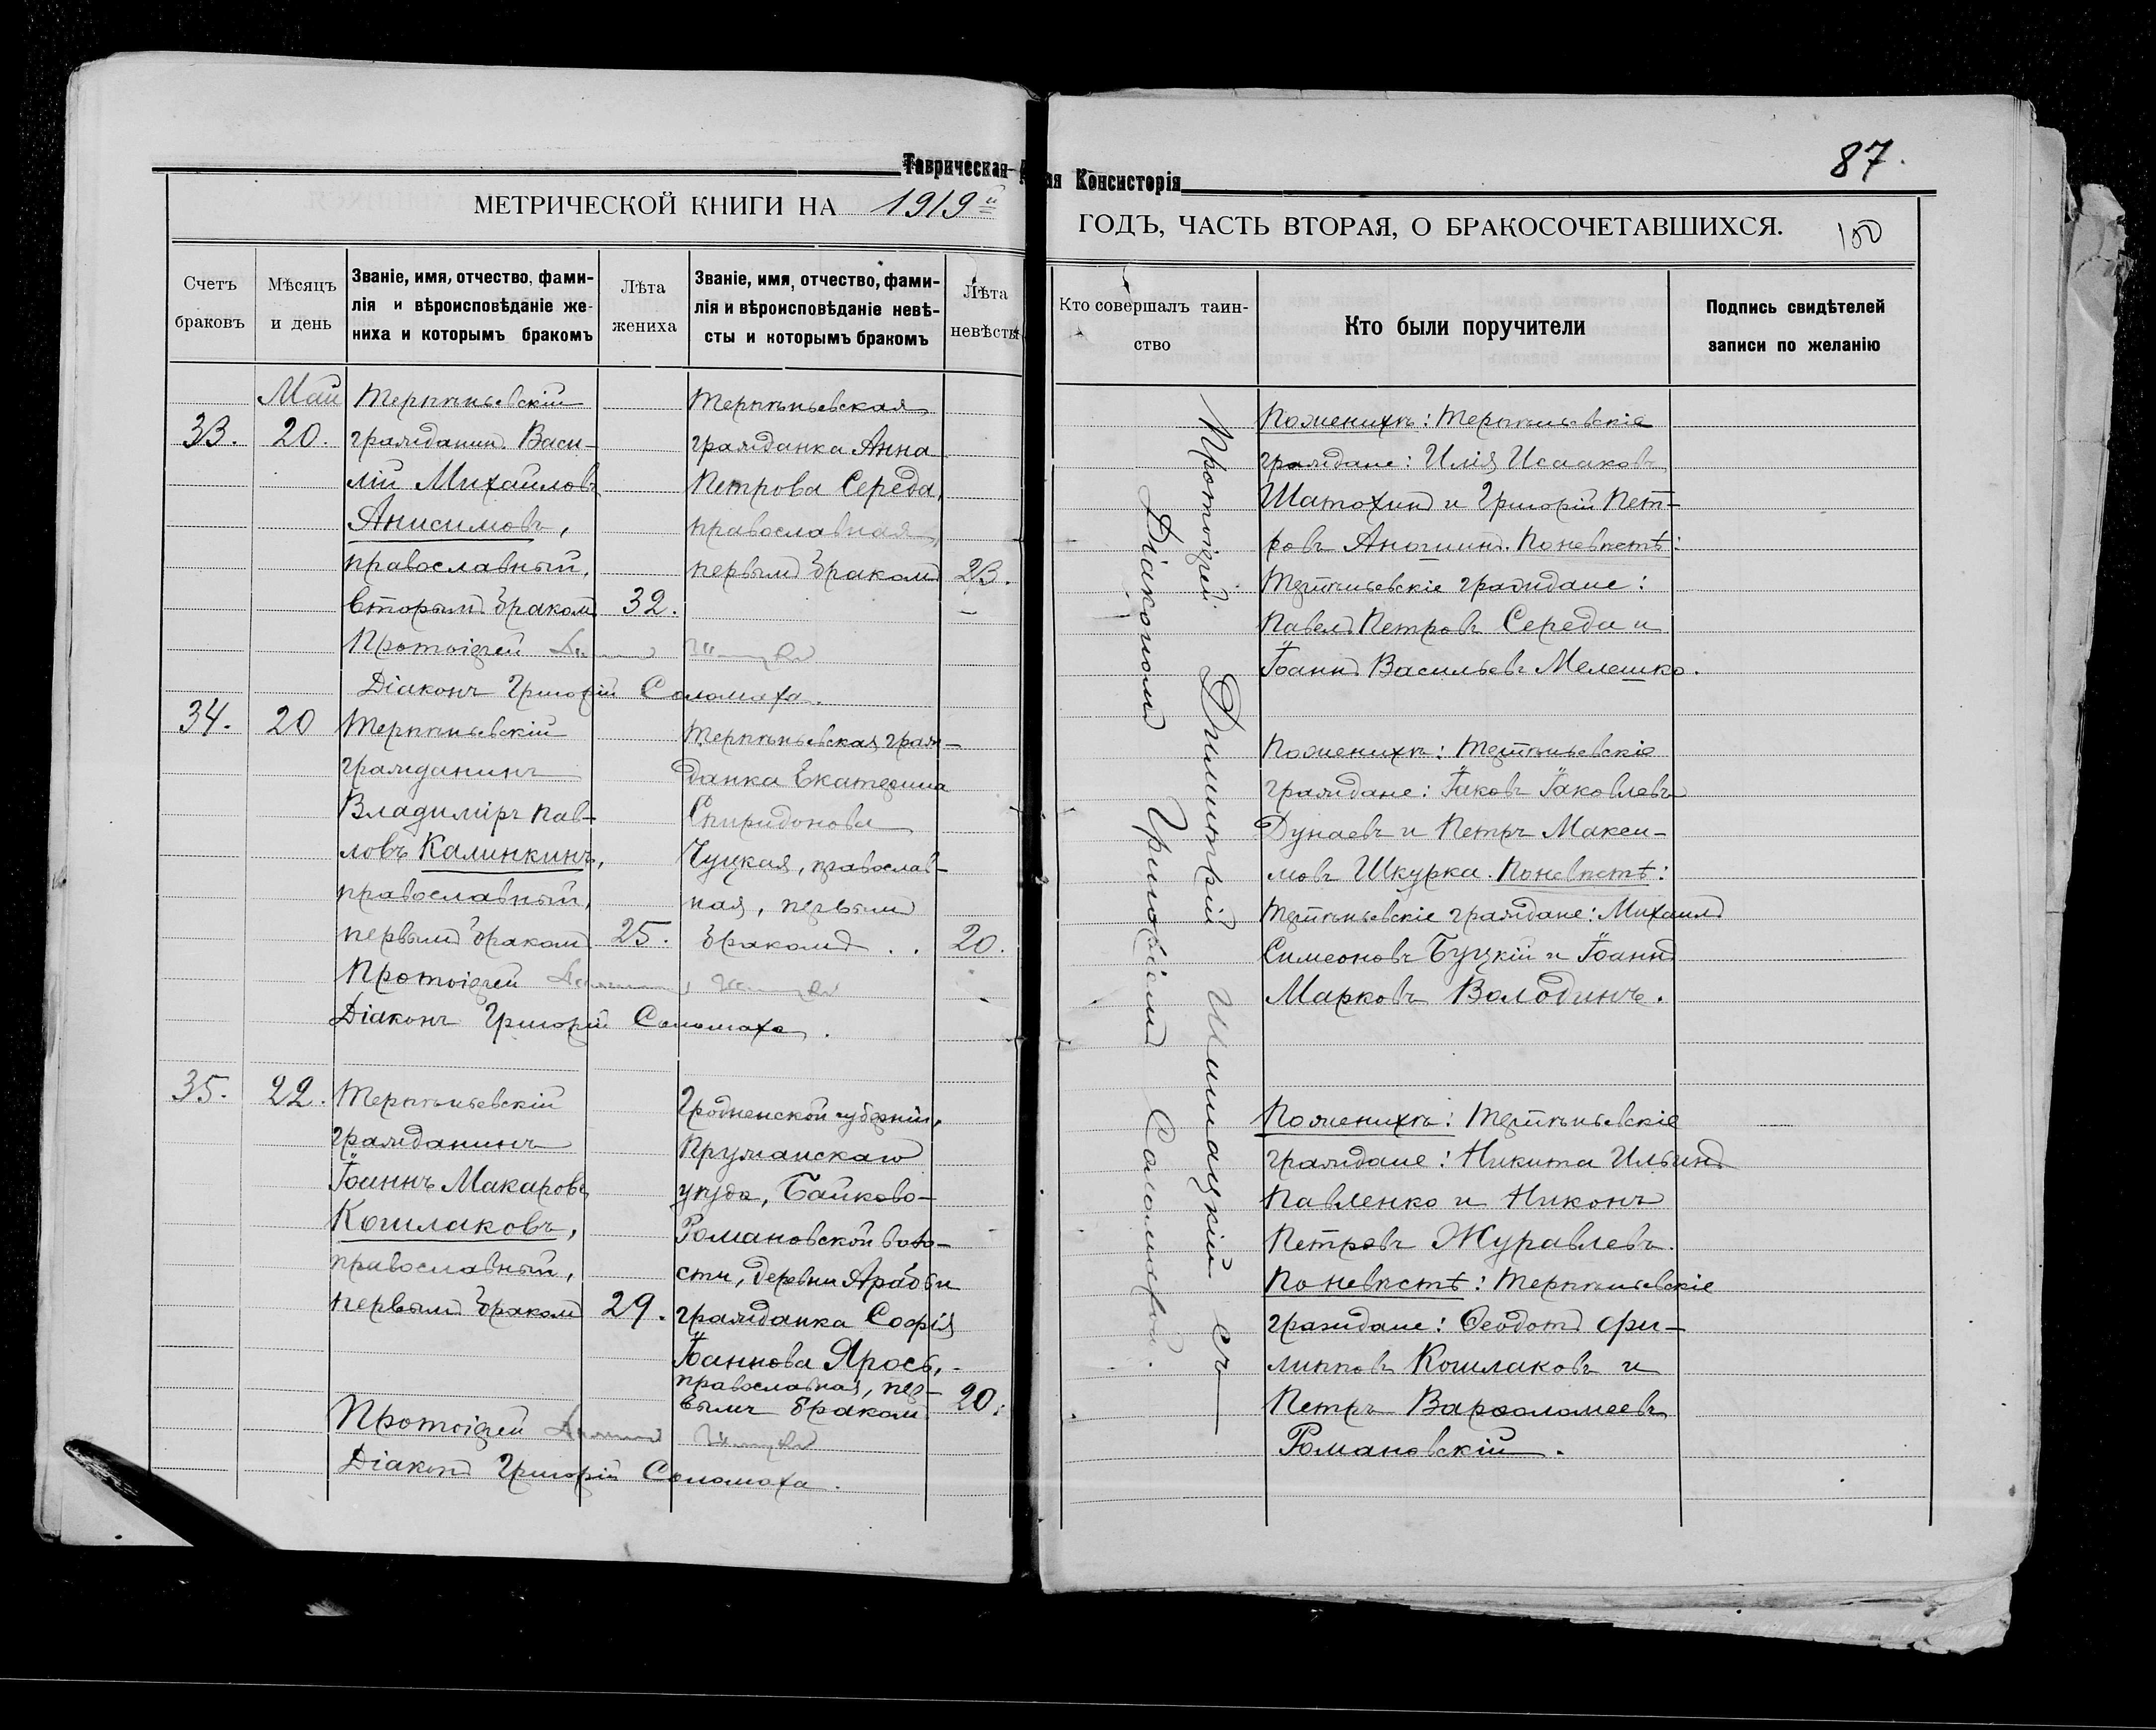 Таврическая
ія Консисторія
87.
МЕТРИЧЕСКОЙ КНИГИ НА 1919й
ГОДЪ, ЧАСТЬ ВТОРАЯ, О БРАКОСОЧЕТАВШИХСЯ.
100
Счетъ
браковъ
Мѣсяцъ
и день
Званіе, имя, отчество, фами-
лія и вѣроисповѣданіе же-
ниха и которымъ бракомъ
Лѣта
жениха
Званіе, имя, отчество, фами-
лія и вѣроисповѣданіе невѣ-
сты и которымъ бракомъ
Лѣта
невѣсты
Кто совершалъ таин-
ство
Кто были поручители
Подпись свидѣтелей
записи по желанію
Май
33. 20.
Терпѣньевскій
гражданинъ Васи-
лій Михайловъ
Анисимовъ,
православный,
вторымъ бракомъ 32.
Терпѣньевская
гражданка Анна
Петрова Середа,
православная,
первымъ бракомъ 23.
Протоіерей
Діаконъ Григорій Соломаха.
34. 20
Терпѣньевскій
гражданинъ
Владиміръ Пав-
ловъ Калинкинъ,
православный,
первымъ бракомъ 25.
Терпѣньевская граж-
данка Екатерина
Спиридонова
Чуцкая, православ-
ная, первымъ
бракомъ . . 20.
Протоіерей
Діаконъ Григорій Соломаха.
35. 22.
Терпѣньевскій
гражданинъ
Іоаннъ Макаровъ
Кошлаковъ,
православный,
первымъ бракомъ 29.
Гродненской губерніи,
Пружанскаго
уѣзда, Байково-
Романовской воло-
сти, деревни Арабьи
гражданка Софія
Іоаннова Ярось,
православная, пер-
вымъ бракомъ 20.
Протоіерей
Діаконъ Григорій Соломаха.
Протоіерей Димитрій Шпинацкій съ
Діакономъ Григоріемъ Соломахой.
По женихѣ: Терпѣньевскіе
граждане: Илія Исааковъ
Шатохинъ и Григорій Пет-
ровъ Аношинъ. По невѣстѣ:
Терпѣньевскіе граждане:
Павелъ Петровъ Середа и
Іоаннъ Васильевъ Мелешко.
По женихѣ: Терпѣньевскіе
граждане: Іаковъ Іаковлевъ
Дунаевъ и Петръ Макси-
мовъ Шкурка. По невѣстѣ:
Терпѣньевскіе граждане: Михаилъ
Симеоновъ Буцкій и Іоаннъ
Марковъ Володинъ.
По женихѣ: Терпѣньевскіе
граждане: Никита Ильинъ
Павленко и Никонъ
Петровъ Журавлевъ.
По невѣстѣ: Терпѣньевскіе
граждане: Ѳеодотъ Фи-
липповъ Кошлаковъ и
Петръ Варѳоломеевъ
Романовскій.